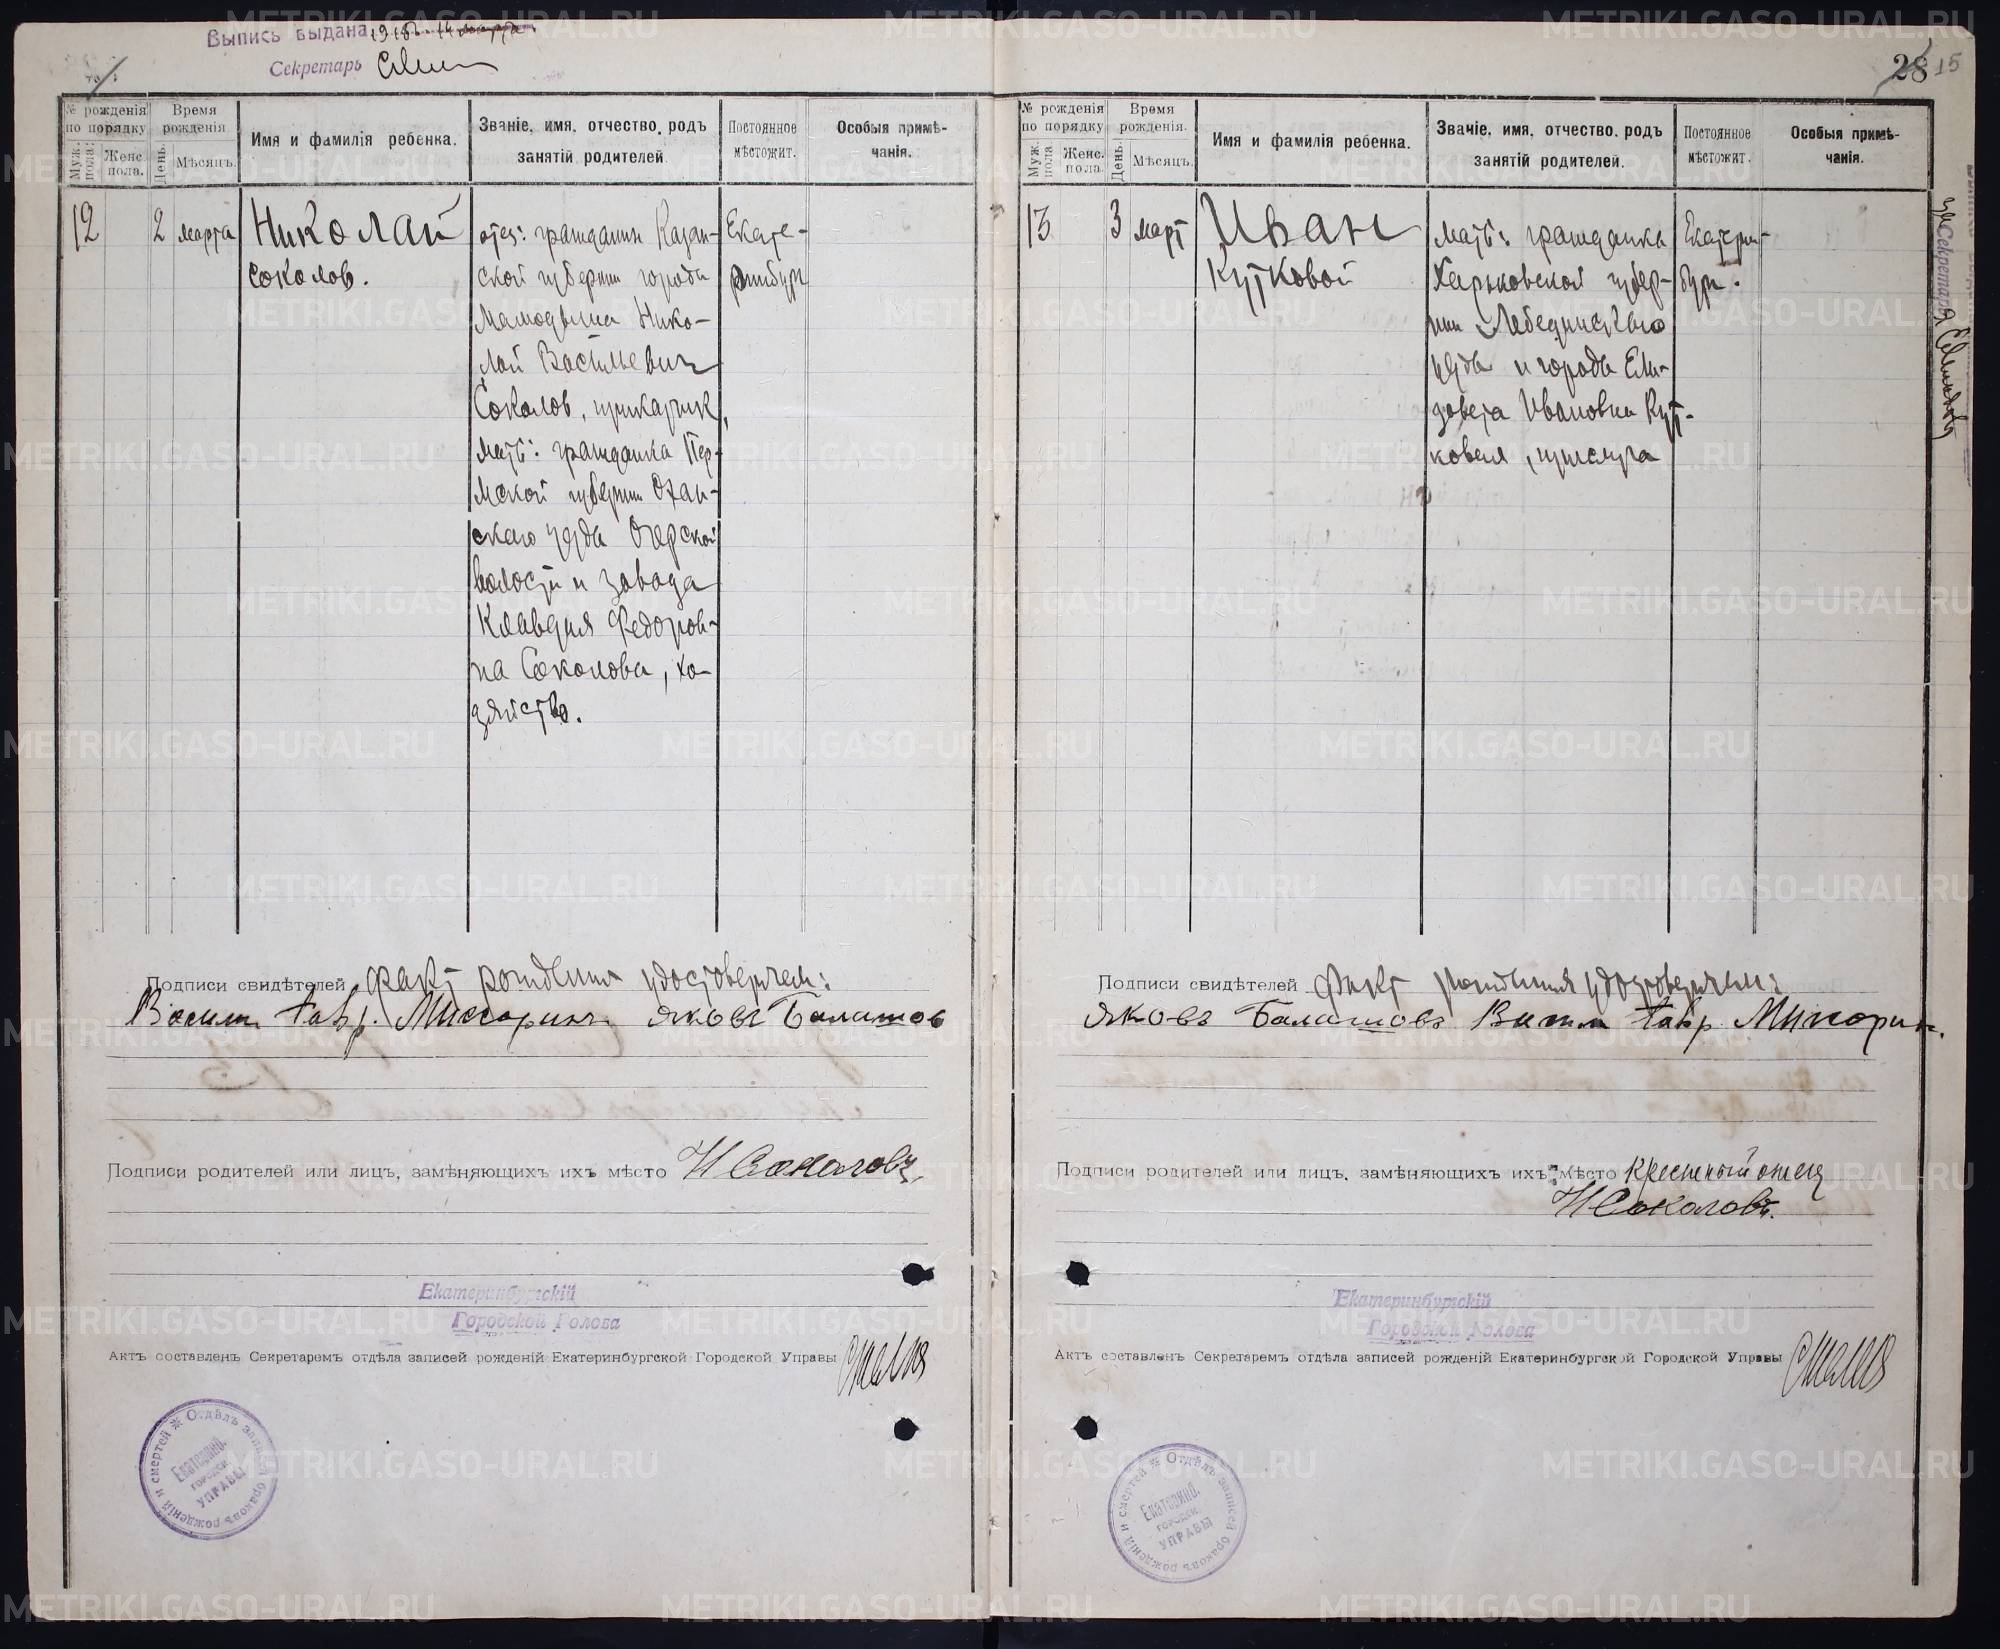 Выпись выдана 1918
Секретарь
№ рожденія по порядку
Муж. пола.
Женс. пола.
Время рожденія
День.
Мѣсяцъ.
Имя и фамилія ребенка.
Званіе, имя, отчество, родъ занятій родителей.
Постоянное мѣстожит.
Особыя примѣ-
чанія.
12
2
марта
Николай
Соколов.
отец: гражданин Казан-
ской губернии города
Мамадыша Нико-
лай Васильевич
Соколов, приказчик,
мать: гражданка Пер-
мской губернии Охан-
скаго уезда Очерской
волости и завода
Клавдия Федоров-
на Соколова, хо-
зяйство.
Екате-
ринбург
Подписи свидѣтелей факт рождения удостоверяем:
Василий Гавр. Яковъ Балашов
Подписи родителей или лицъ, замѣняющихъ ихъ мѣсто Н Соколовъ
Екатеринбургскій
Городской Голова
Актъ составленъ Секретаремъ отдѣла записей рожденій Екатеринбургской Городской Управы
Отдѣлъ записей браковъ рожденій и смертей
Екатеринб.
городск.
УПРАВЫ
28 15
№ рожденія по порядку
Муж. пола
Женс. пола.
Время рожденія.
День.
Мѣсяцъ.
Имя и фамилія ребенка.
Званіе, имя, отчество, родъ занятій родителей.
Постоянное мѣстожит.
Особыя примѣ-
чанія.
13
3
март
Иван
Кутковой
мать: гражданка
Харьковской губер-
нии Лебединскаго
уезда и города Ели-
завета Ивановна Кут-
ковая, прислуга
Екатерин-
бург.
за Секретаря
Подписи свидѣтелей факт рождения удостоверяем:
Яковъ Балашовъ Гавр
Подписи родителей или лицъ, замѣняющихъ ихъ мѣсто Крестный отец
Н Соколовъ.
Екатеринбургскій
Городской Голова
Актъ составленъ Секретаремъ отдѣла записей рожденій Екатеринбургской Городской Управы
Отдѣлъ записей браковъ рожденій и смертей
Екатеринб.
городск.
УПРАВЫ
METRIKI.GASO-URAL.RU